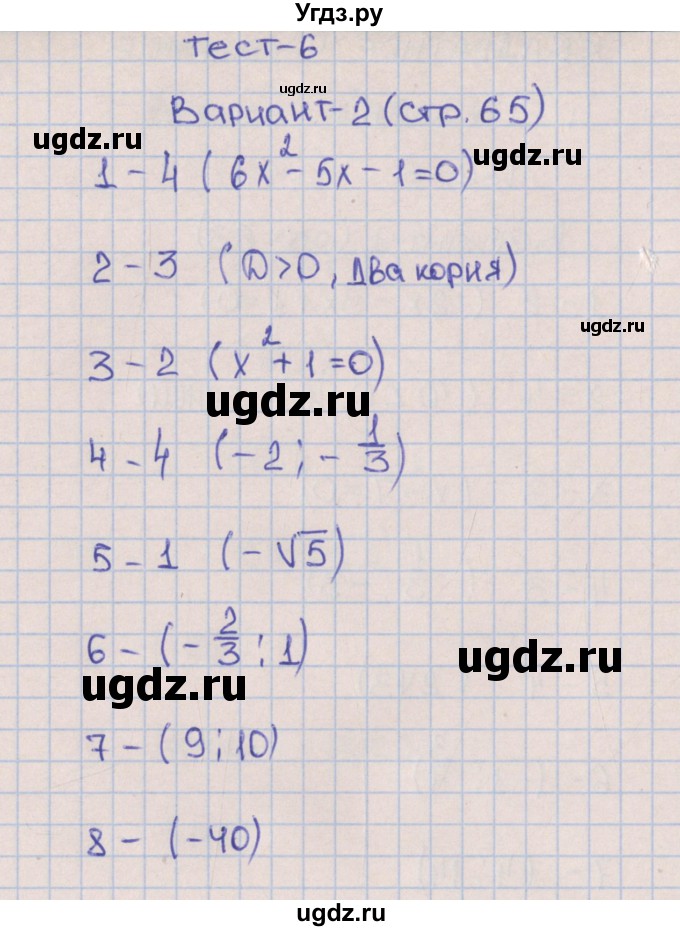 Угдз.ру
Тест-6
ugdz.ru
Вариант-2 (стр. 65)
ugdz.ru
ugdz.ru
1 - 4 ( 6x² - 5x - 1 = 0)
2 - 3 ( D > 0, два корня)
ugdz.ru
3 - 2 (x² + 1 = 0)
ugdz.ru
4 - 4 (-2; - 1/3)
5 - 1 (- √5)
6 - (- 2/3 ; 1)
ugdz.ru
ugdz.ru
7 - ( 9; 10)
8 - (-40)
ugdz.ru